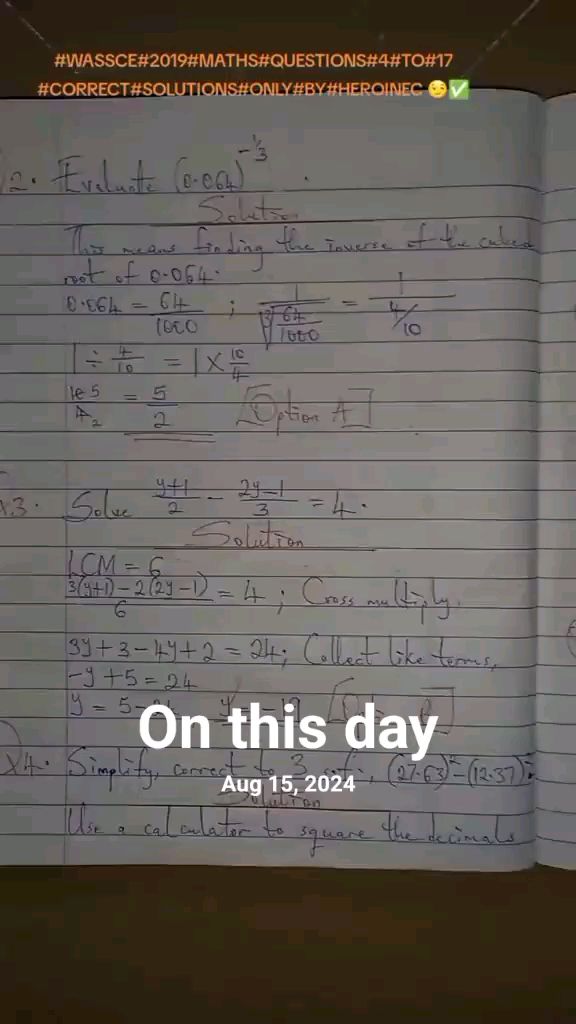 #WASSCE#2019#MATHS#QUESTIONS#4#TO#17
#CORRECT#SOLUTIONS#ONLY#BY#HEROINEC 😏✅
2. Evaluate (0.064)^-1/3.
Solution
This means finding the inverse of the cubed
root of 0.064.
0.064 = 64/1000 ; 1/∛(64/1000) = 1/(4/10)
1 ÷ 4/10 = 1 × 10/4
10 5/4 2 = 5/2 Option A
x3. Solve (y+1)/2 - (2y-1)/3 = 4.
Solution
LCM = 6
(3(y+1) - 2(2y-1))/6 = 4 ; Cross multiply.
3y + 3 - 4y + 2 = 24; Collect like terms,
-y + 5 = 24
y = 5 -
On this day
x4. Simplify, correct to 3 (27.63)² - (12.37)²
Aug 15, 2024
Solution
Use a calculator to square the decimals